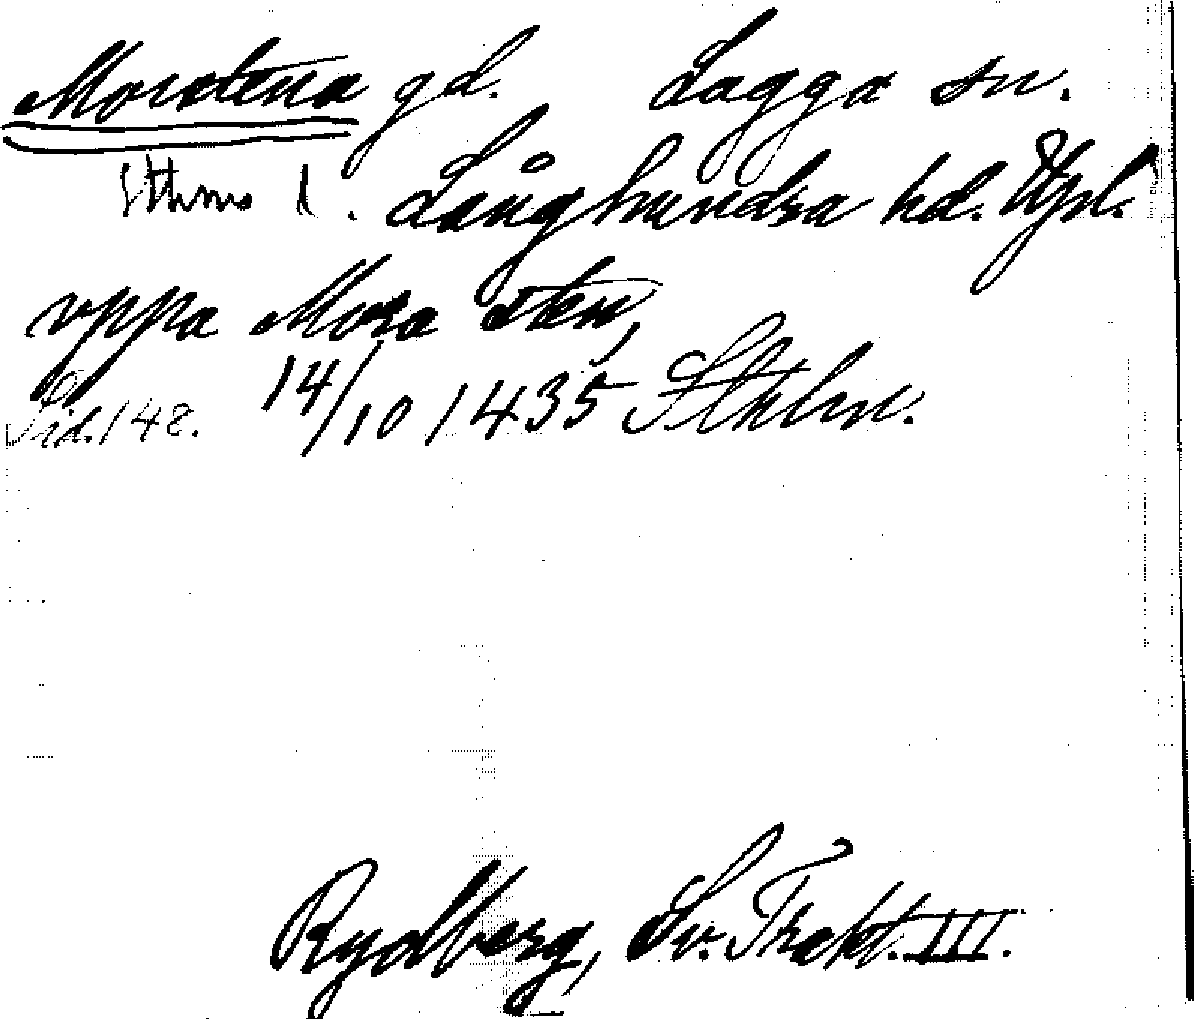 Morastena gd. Lagga sn.
Sthms l. Långhundra hd. Upl.
vppa Mora sten,
Sid. 148. 14/10 1435 Sthlm.
Rydberg, Sv. Trakt. III.